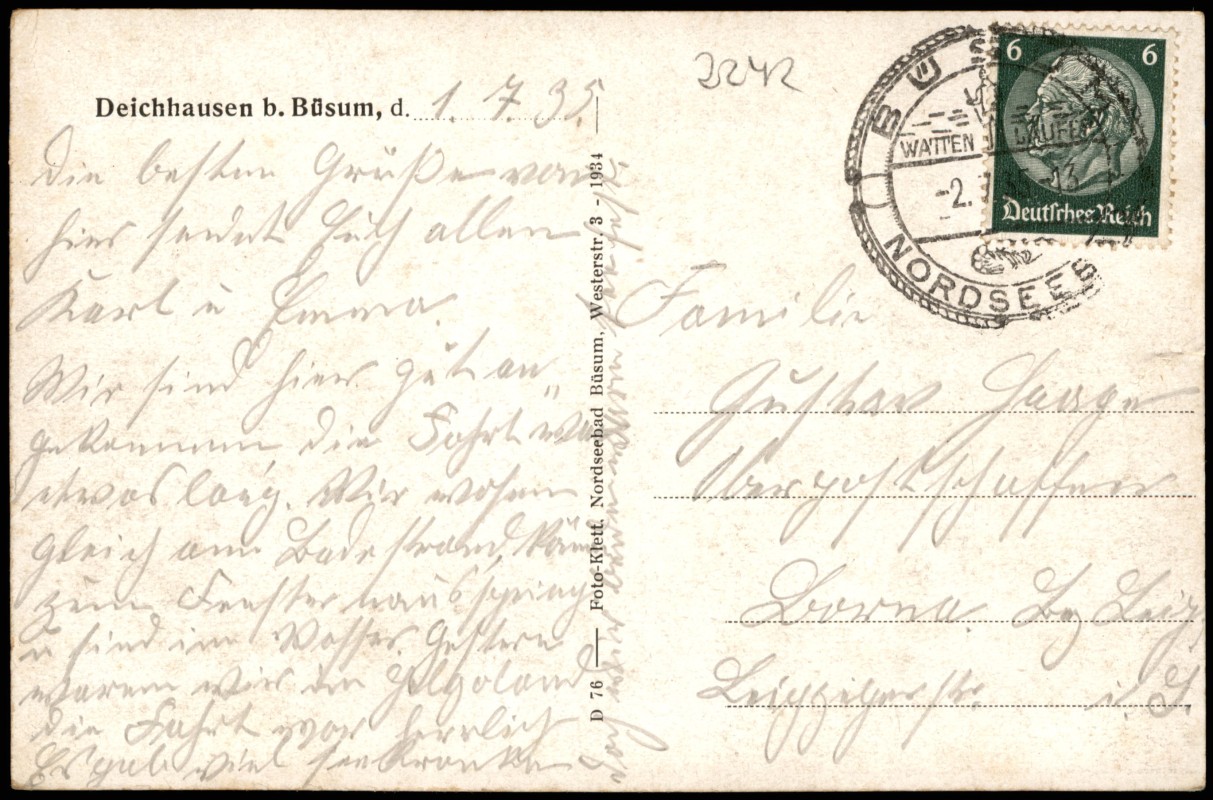 Deichhausen b. Büsum, d. 1. 7. 35.
Die besten Grüße von
hier sendet Euch allen
Karl u Emma.
Wir sind hier gut an„
gekommen die Fahrt war
etwas lang. Wir wohnen
gleich am Badestrand, könn
zum Fenster nausspring
u sind im Wasser. Gestern
waren wir in Helgoland
die Fahrt war herrlich
Es gab viel Seekranke
D 76 — Foto-Klett, Nordseebad Büsum, Westerstr. 3 - 1934
2242
BÜSUM
WATTENLAUFEN
-2.7.35-13
NORDSEEB
6 6
Deutsches Reich
Familie
Gustav Haage
Oberpostschaffner
Borna Bz Leipz
Leipzigerstr. i. S.